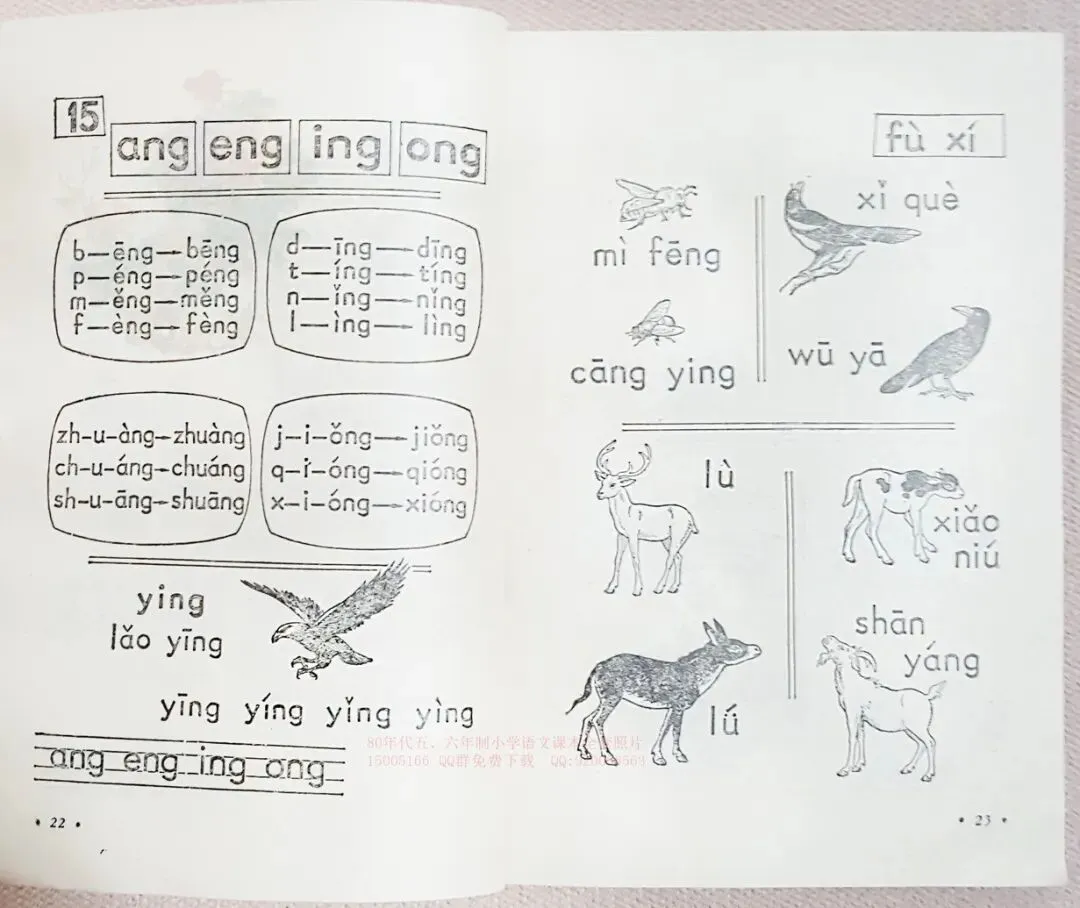 15
ang eng ing ong
b—ēng→bēng
p—éng→péng
m—ěng→měng
f—èng→fèng
d—īng→dīng
t—íng→tíng
n—ǐng→nǐng
l—ìng→lìng
zh-u-àng→zhuàng
ch-u-áng→chuáng
sh-u-āng→shuāng
j-i-ǒng→jiǒng
q-i-óng→qióng
x-i-óng→xióng
ying
lǎo yīng
yīng yíng yǐng yìng
ang eng ing ong
• 22 •
fù xí
mì fēng
xǐ què
cāng ying
wū yā
lù
xiǎo
niú
shān
yáng
lǘ
• 23 •
80年代五、六年制小学语文课本 照片
15005166 QQ群免费下载 QQ: